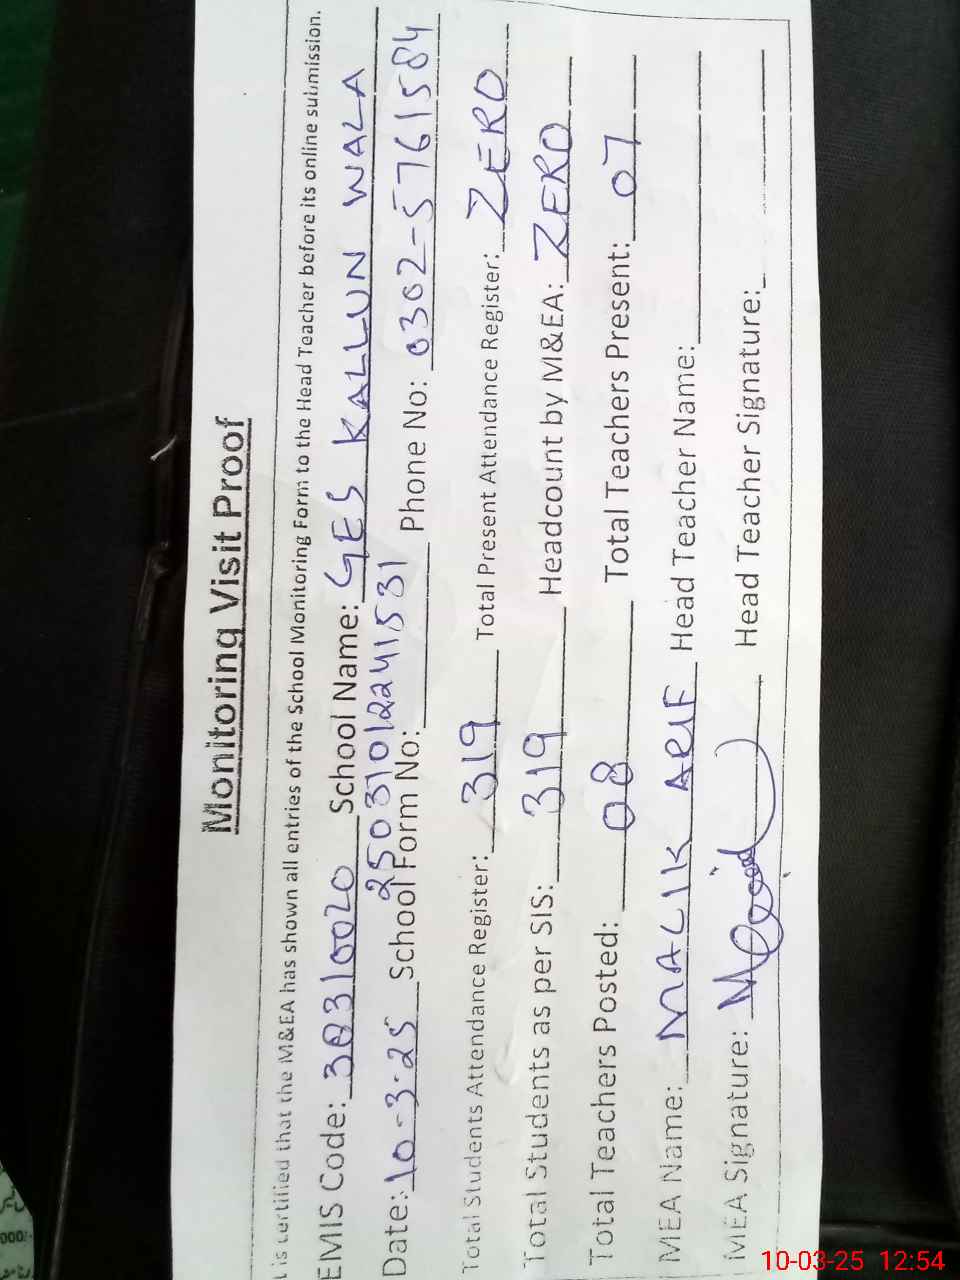 Monitoring Visit Proof
is certified that the M&EA has shown all entries of the School Monitoring Form to the Head Teacher before its online submission.
EMIS Code: 38310020 School Name: GES KALLUN WALA
Date: 10-3-25 School Form No: 2503101224 1531 Phone No: 0302-5761584
Total Students Attendance Register: 319 Total Present Attendance Register: ZERO
Total Students as per SIS: 319 Headcount by M&EA: ZERO
Total Teachers Posted: 08 Total Teachers Present: 07
MEA Name: MALIK ARIF Head Teacher Name:
MEA Signature: Head Teacher Signature:
10-03-25 12:54